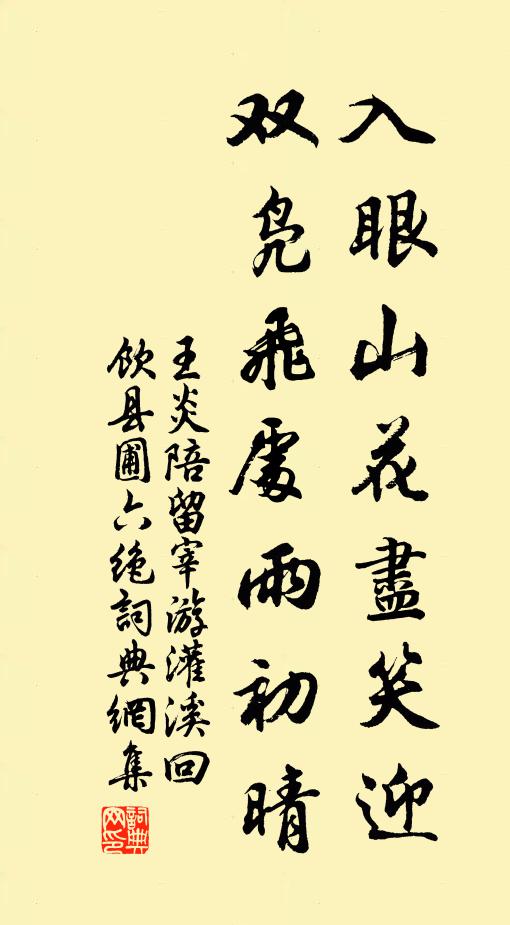 入眼山花盡笑迎
双凫飛處雨初晴
王炎陪留宰游灌溪回
飲县圃六绝詞典網集
詞典
网印